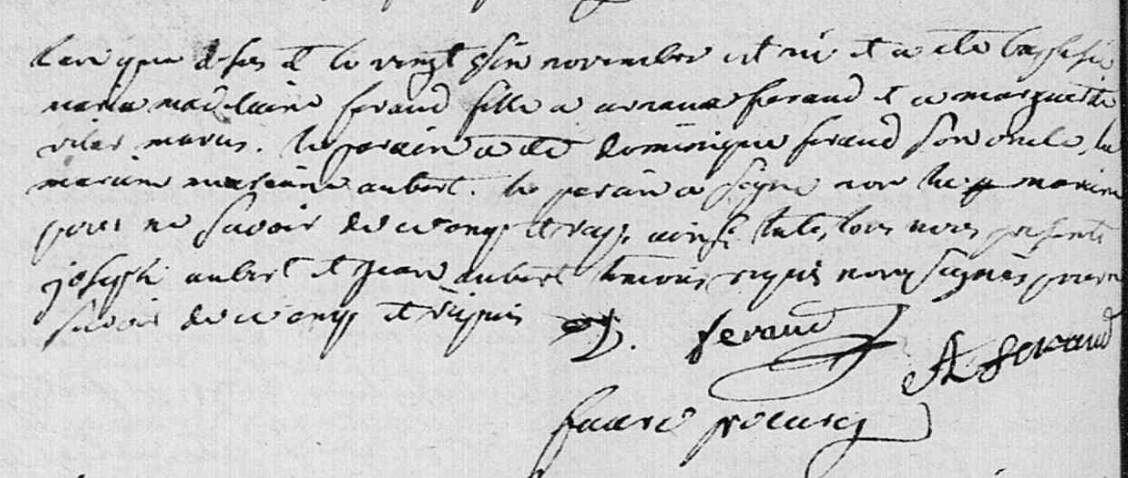 l'an que dessus et le vingt sin novembre est né et a ete baptisée
maria madelaine feraud fille a arnaud feraud et a margueritte
vilar maries. le parain a ete dominique feraud son oncle, la
maraine marianne aubert. le parain a signe non la maraine
pour ne savoir de ce enquis et requis ainsi l'atestons nous presents
joseph aubert et jean aubert temoins requis non signés pour ne
savoir de ce enquis et requis D. feraud A feraud
faure procuré